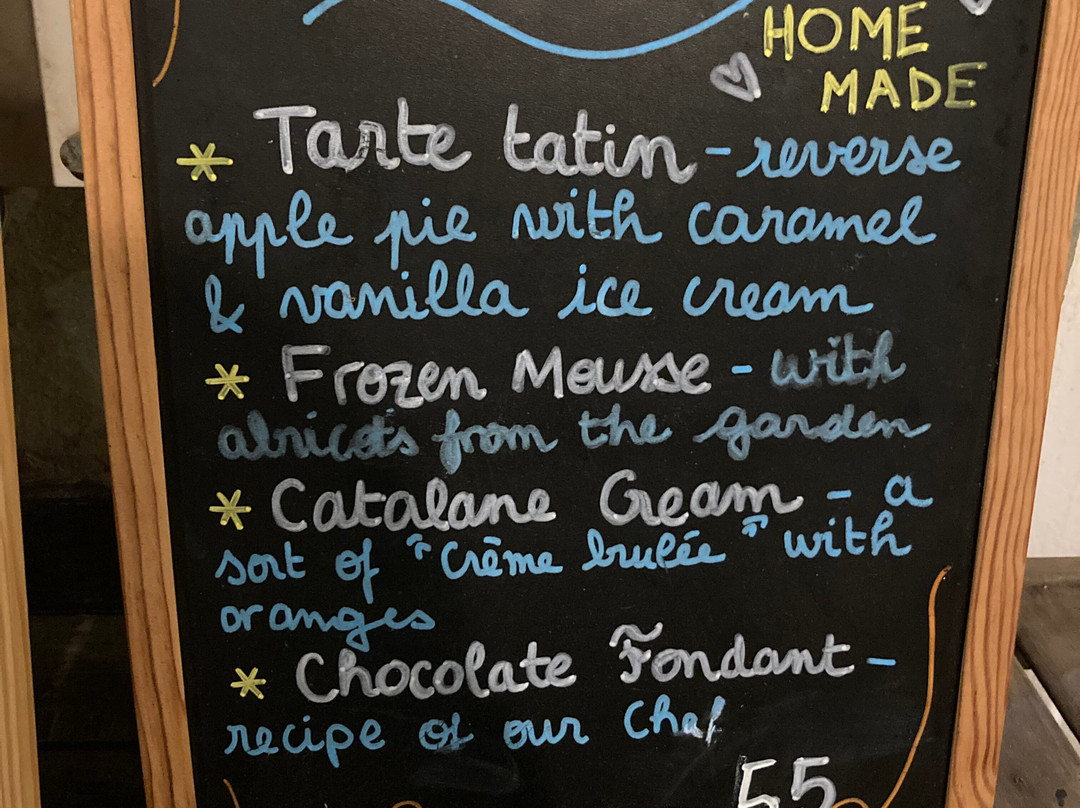 HOME
MADE
* Tarte tatin - reverse
apple pie with caramel
& vanilla ice cream
* Frozen Mousse - with
abricots from the garden
* Catalane Cream - a
sort of "Crème brulée" with
oranges
* Chocolate Fondant -
recipe of our Chef
55